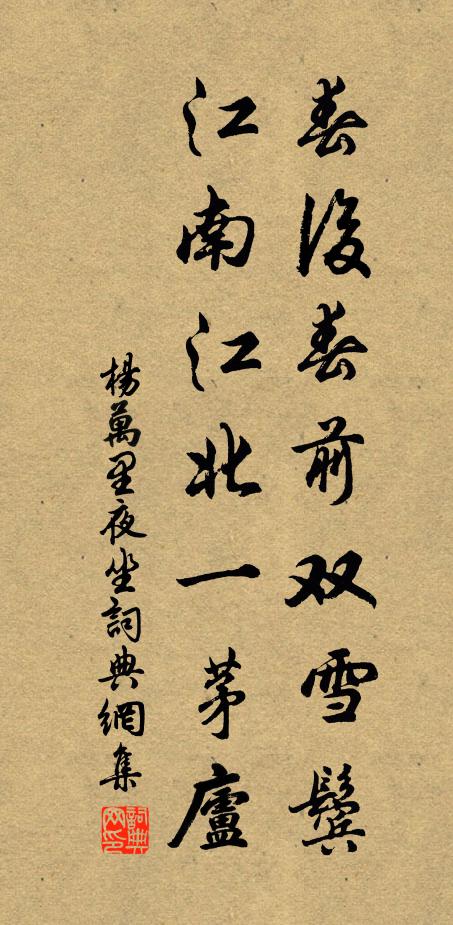 春後春前双雪鬓
江南江北一茅廬
楊萬里夜坐詞典網集
詞典网印